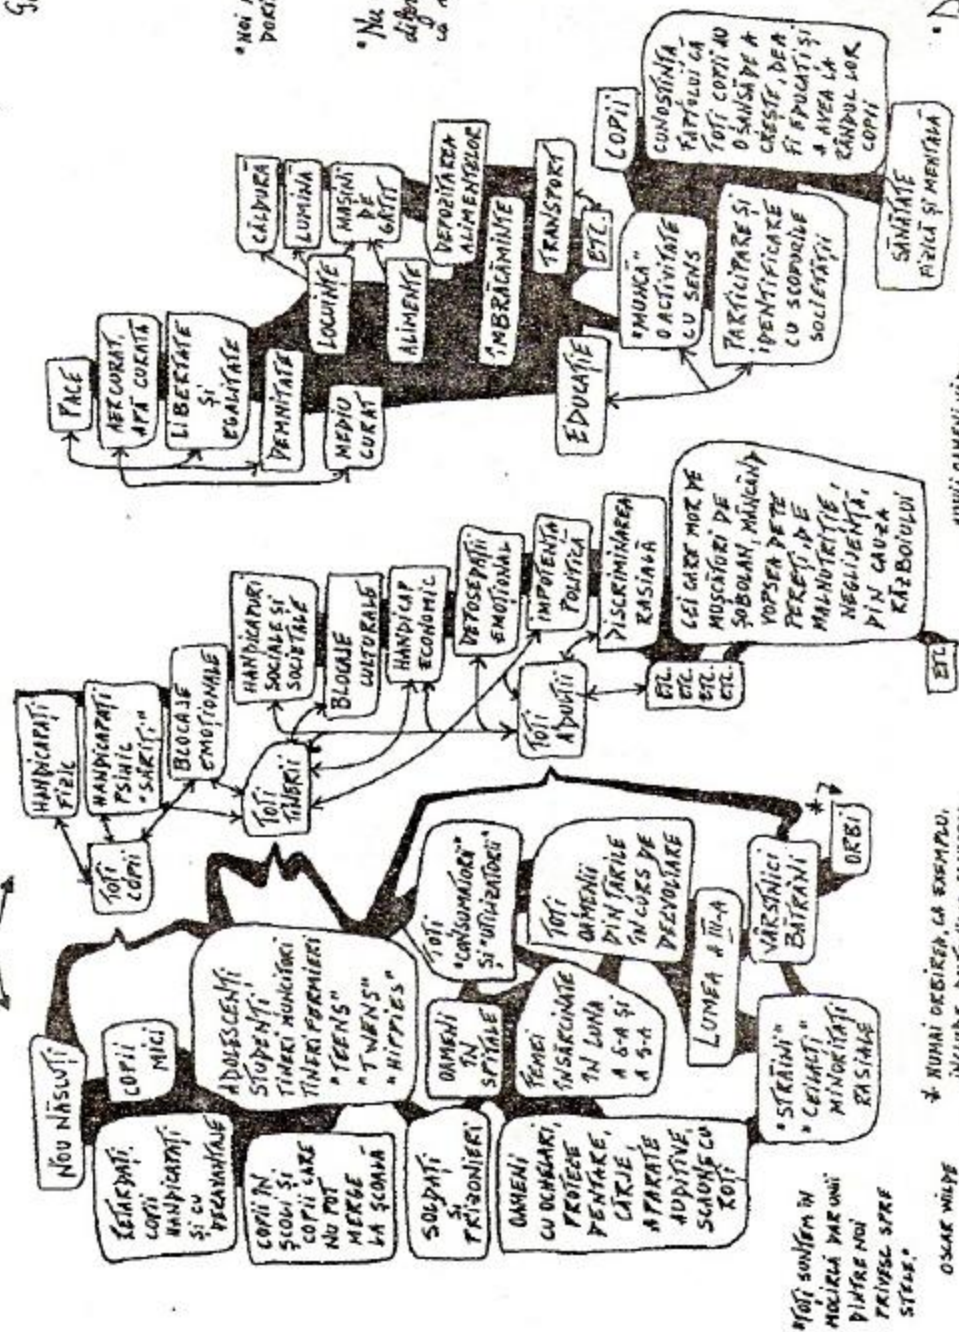 NOU NĂSCUȚI
RETARDAȚI,
COPII
HANDICAPAȚI
ȘI CU
DEZAVANTAJE
COPII
MICI
COPII ÎN
ȘCOLI ȘI
COPII CARE
NU POT
MERGE
LA ȘCOALĂ
ADOLESCENTI
STUDENȚI
TINERI MUNCITORI
TINERI FERMIERI
"TEENS"
"TWENS"
"HIPPIES"
SOLDAȚI
ȘI
PRIZONIERI
OAMENI
ÎN
SPITALE
TOȚI
"CONSUMATORII"
ȘI "UTILIZATORII"
OAMENI
CU OCHELARI,
PROTEZE
DENTARE,
CÂRJE,
APARATE
AUDITIVE,
SCAUNE CU
ROȚI
FEMEI
ÎNSĂRCINATE
ÎN LUNA
A 8-A ȘI
A 9-A
TOȚI
OAMENII
DIN ȚĂRILE
ÎN CURS DE
DEZVOLTARE
LUMEA A III-A
"STRĂINI"
"CEILALȚI"
MINORITAȚI
RASIALE
VÂRSTNICI
BĂTRÂNI
*
ORBI
"TOȚI SUNTEM ÎN
MOCIRLĂ DAR UNII
DINTRE NOI
PRIVESC SPRE
STELE."
OSCAR WILDE
* NUMAI ORBIREA, CA EXEMPLU,
HANDICAPAȚI
FIZIC
HANDICAPAȚI
PSIHIC
"SĂRIȚI"
TOȚI
COPII
BLOCAJE
EMOȚIONALE
HANDICAPURI
SOCIALE ȘI
SOCIETALE
TOȚI
TINERII
BLOCAJE
CULTURALE
HANDICAP
ECONOMIC
DEPOSEDAȚII
EMOȚIONAL
IMPOTENȚA
POLITICĂ
TOȚI
ADULȚII
DISCRIMINAREA
RASIALĂ
ETC.
ETC.
ETC.
ETC.
CEI CARE MOR DE
MUȘCĂTURI DE
ȘOBOLAN, MÂNCÂND
VOPSEA DE PE
PEREȚI, DE
MALNUTRIȚIE,
NEGLIJENȚĂ,
DIN CAUZA
RĂZBOIULUI
ETC
PACE
AER CURAT,
APĂ CURATĂ
LIBERTATE
ȘI
EGALITATE
DEMNITATE
MEDIU
CURAT
CĂLDURĂ
LUMINĂ
LOCUINȚE
MAȘINI
DE
GĂTIT
ALIMENTE
DEPOZITAREA
ALIMENTELOR
ÎMBRĂCĂMINTE
TRANSPORT
ETC.
EDUCAȚIE
"MUNCĂ"
O ACTIVITATE
CU SENS
COPII
CUNOȘTINȚA
FAPTULUI CĂ
TOȚI COPII AU
O ȘANSĂ DE A
CREȘTE, DE A
FI EDUCAȚI ȘI
A AVEA LA
RÂNDUL LOR
COPII
PARTICIPARE ȘI
IDENTIFICARE
CU SCOPURILE
SOCIETĂȚII
SĂNĂTATE
FIZICĂ ȘI MENTALĂ
"NOI
"NU